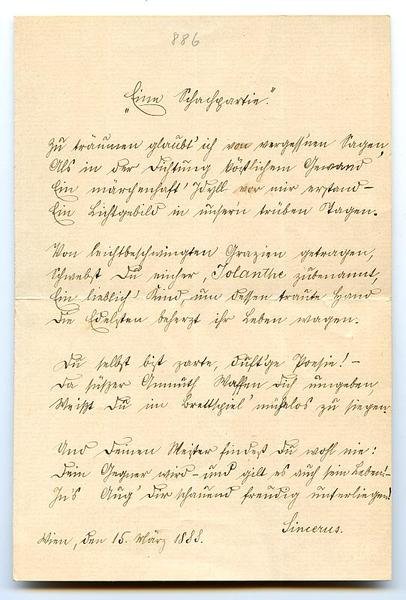 886
„Eine Schachpartie".
Zu träumen glaubt' ich von vergess'nen Sagen,
Als in der Dichtung köstlichem Gewand
Ein märchenhaft' Idyll vor mir erstand –
Ein Lichtgebild in unsern trüben Tagen.
Von leichtbeschwingten Grazien getragen,
Schwebst Du einher, Iolanthe zubenannt,
Ein lieblich' Kind, um dessen traute Hand
Die Edelsten beherzt ihr Leben wagen.
Du selbst bist zarte, duft'ge Poesie! –
Da süßer Anmuth Waffen Dich umgeben,
Weißt Du im Brettspiel mühelos zu siegen.
Und Deinen Meister findest Du wohl nie:
Dein Gegner wird – und gilt es auch sein Leben! –
In's Aug' Dir schauend freudig unterliegen!
Sincerus.
Wien, den 15. März 1888.